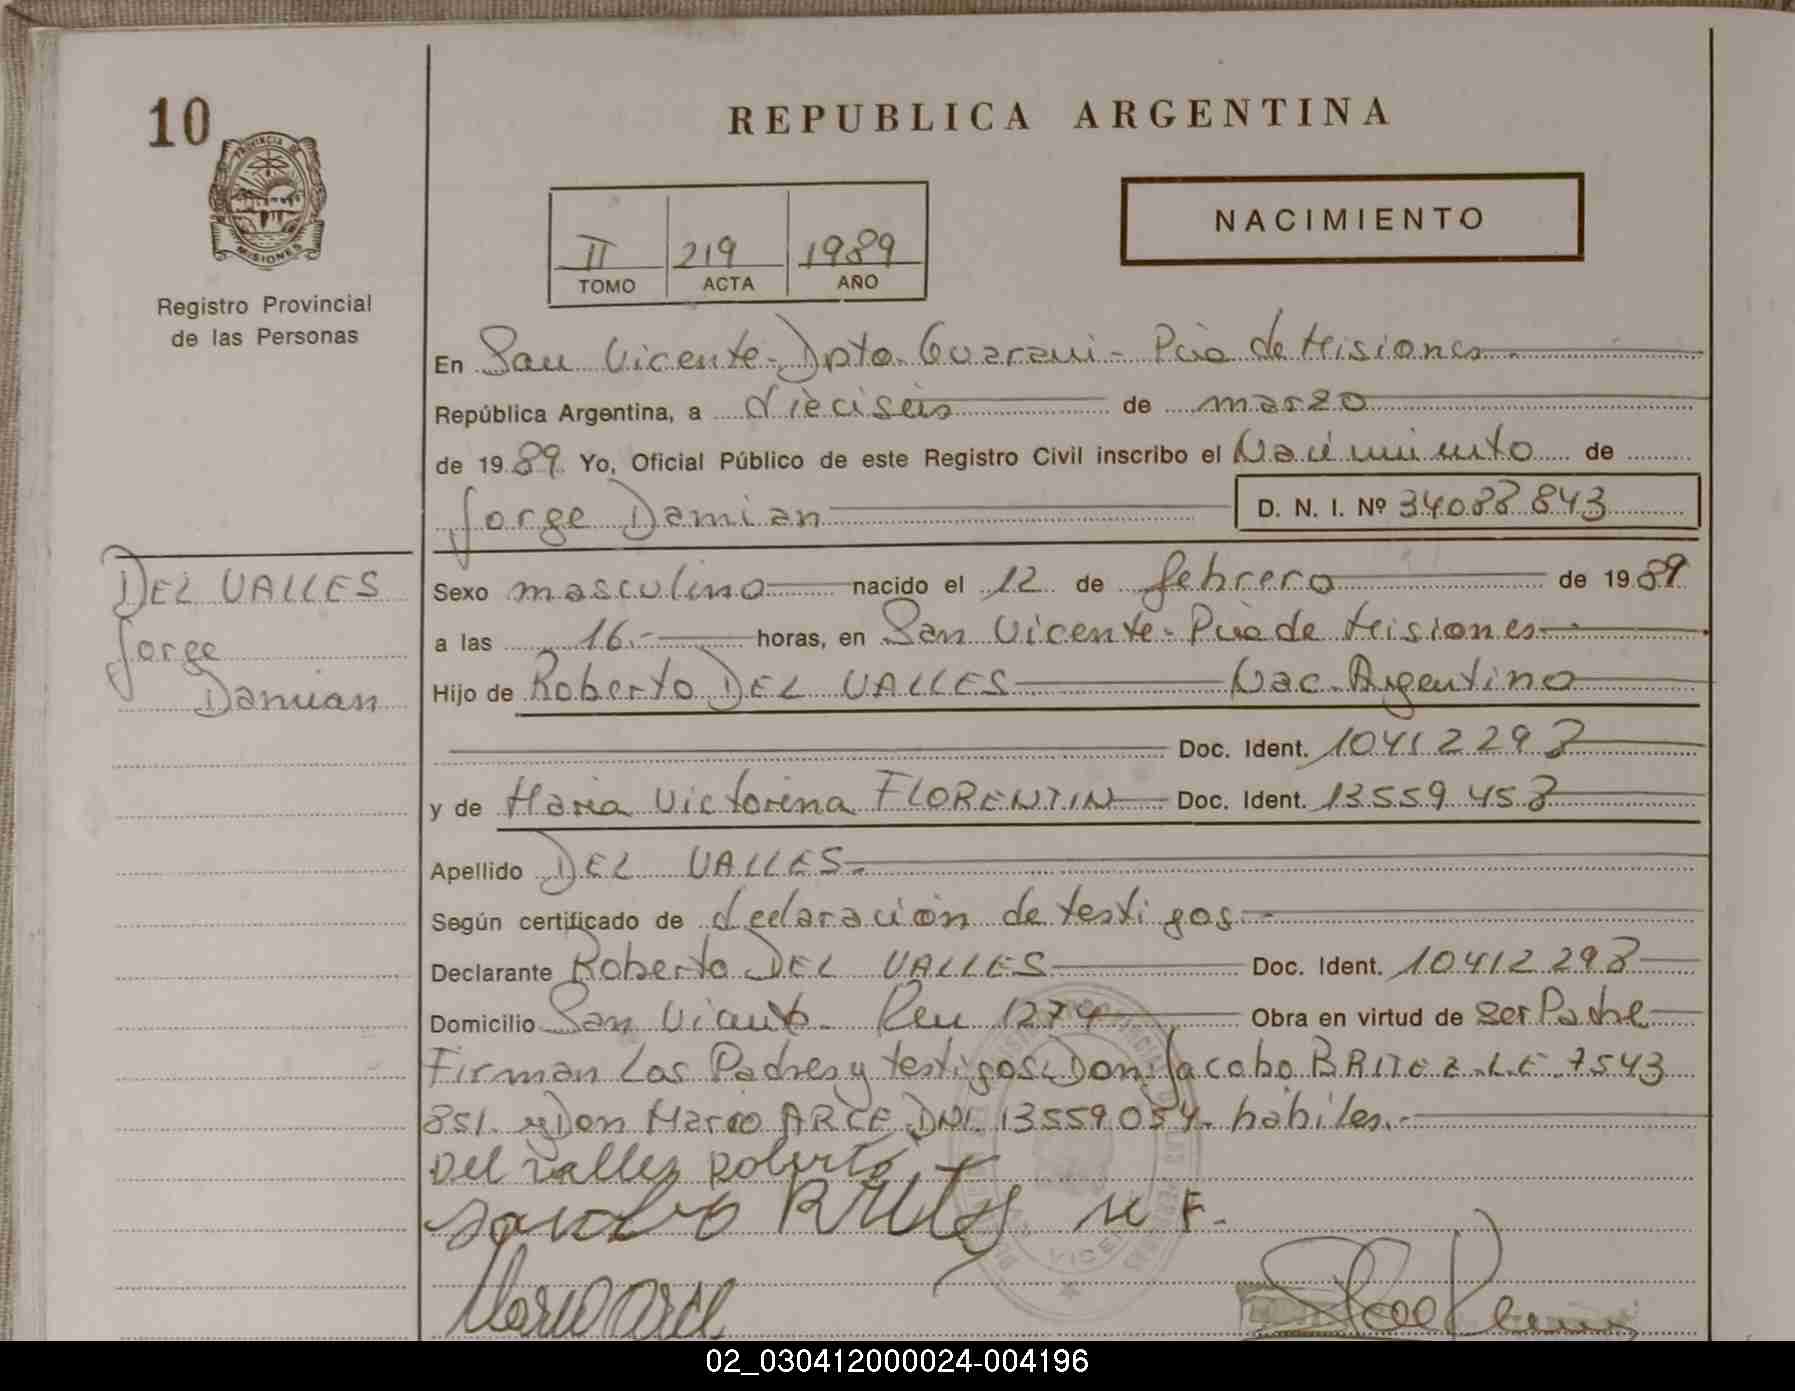 10
PROVINCIA DE
MISIONES
Registro Provincial
de las Personas
REPUBLICA ARGENTINA
II 219 1989
TOMO ACTA AÑO
NACIMIENTO
En San Vicente - Dpto. Guarani - Pcia de Misiones
República Argentina, a dieciseis de marzo
de 1989 Yo, Oficial Público de este Registro Civil inscribo el Nacimiento de
Jorge Damian D. N. I. Nº 34088843
DEL VALLES
Jorge
Damian
Sexo masculino nacido el 12 de febrero de 1989
a las 16.- horas, en San Vicente - Pcia de Misiones
Hijo de Roberto DEL VALLES Nac. Argentino
Doc. Ident. 10412298
y de Maria Victorina FLORENTIN Doc. Ident. 13559458
Apellido DEL VALLES.
Según certificado de declaración de testigos
Declarante Roberto DEL VALLES Doc. Ident. 10412298
Domicilio San Vicente. 1274 Obra en virtud de ser Padre
Firman Los Padres y testigos Don Jacobo BRITEZ L.E 7543
851. y Don Mario ARCE DNI. 13559054. habiles.
Del valles Roberto
Jacobo Britez M F.
Mario Arce
02_030412000024-004196